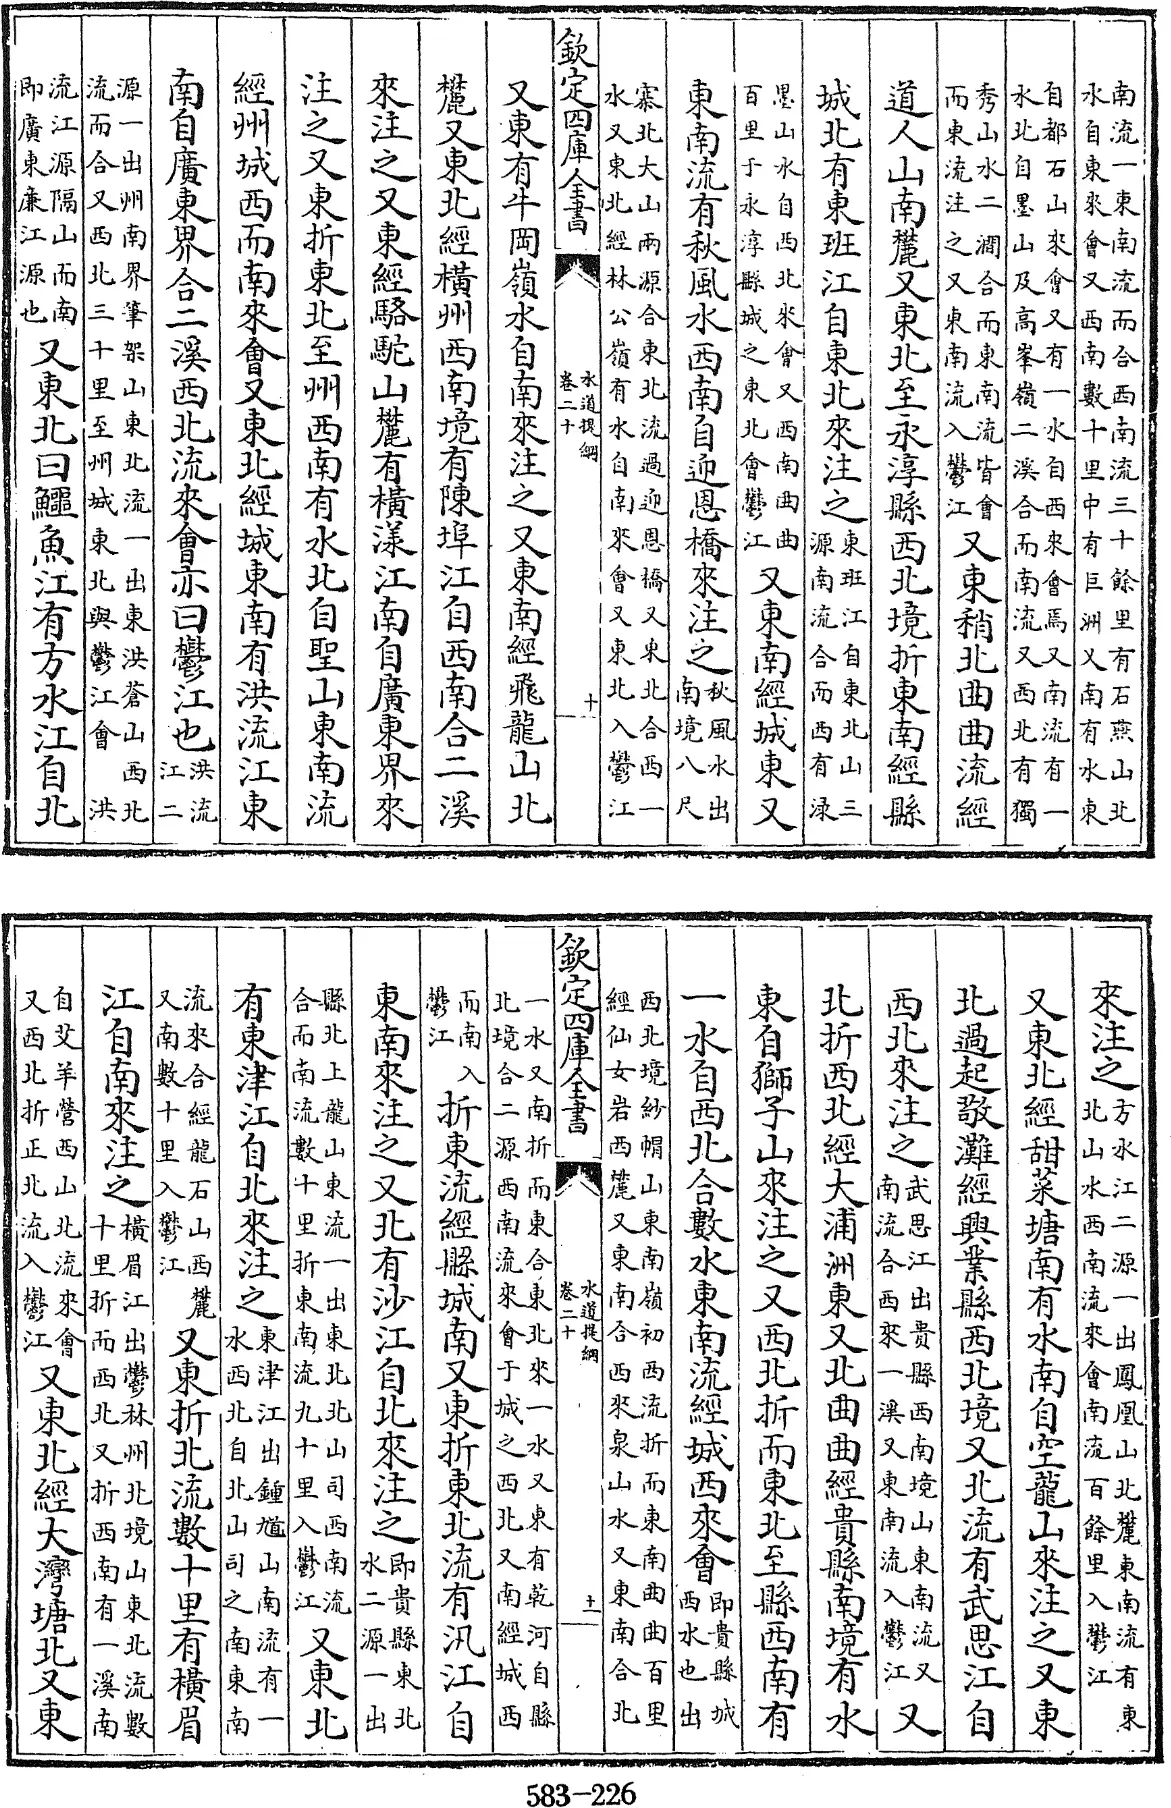 南流一東南流而合西南流三十餘里有石燕山北
水自東來會又西南數十里中有巨洲乂南有水東
自都石山來會又有一水自西來會焉又南流有一
水北自墨山及高峯嶺二溪合而南流又西北有獨
秀山水二澗合而東南流皆會
而東流注之又東南流入鬱江
又東稍北曲曲流經
道人山南麓又東北至永淳縣西北境折東南經縣
城北有東班江自東北來注之
東班江自東北山三
源南流合而西有淥
墨山水自西北來會又西南曲曲
百里于永淳縣城之東北會鬱江
又東南經城東又
東南流有秋風水西南自迎恩橋來注之
秋風水出
南境八尺
寨北大山兩源合東北流過迎恩橋又東北合西一
水又東北經林公嶺有水自南來會又東北入鬱江
欽定四庫全書
水道提綱
卷二十
十
又東有牛岡嶺水自南來注之又東南經飛龍山北
麓又東北經橫州西南境有陳埠江自西南合二溪
來注之又東經駱駝山麓有橫漾江南自廣東界來
注之又東折東北至州西南有水北自聖山東南流
經州城西而南來會又東北經城東南有洪流江東
南自廣東界合二溪西北流來會亦曰鬱江也
洪流
江二
源一出州南界筆架山東北流一出東洪蒼山西北
流而合又西北三十里至州城東北與鬱江會 洪
流江源隔山而南
即廣東廉江源也
又東北曰鱷魚江有方水江自北
來注之
方水江二源一出鳳凰山北麓東南流有東
北山水西南流來會南流百餘里入鬱江
又東北經甜菜塘南有水南自空龍山來注之又東
北過起敬灘經興業縣西北境又北流有武思江自
西北來注之
武思江出貴縣西南境山東南流又
南流合西來一溪又東南流入鬱江
又
北折西北經大浦洲東又北曲曲經貴縣南境有水
東自獅子山來注之又西北折而東北至縣西南有
一水自西北合數水東南流經城西來會
即貴縣城
西水也出
西北境紗帽山東南嶺初西流折而東南曲曲百里
經仙女岩西麓又東南合西來泉山水又東南合北
欽定四庫全書
水道提綱
卷二十
十一
一水又南折而東合東北來一水又東有乾河自縣
北境合二源西南流來會于城之西北又南經城西
而南入
鬱江
折東流經縣城南又東折東北流有汎江自
東南來注之又北有沙江自北來注之
即貴縣東北
水二源一出
縣北上龍山東流一出東北北山司西南流
合而南流數十里折東南流九十里入鬱江
又東北
有東津江自北來注之
東津江出鍾馗山南流有一
水西北自北山司之南東南
流來合經龍石山西麓
又南數十里入鬱江
又東折北流數十里有橫眉
江自南來注之
橫眉江出鬱林州北境山東北流數
十里折而西北又折西南有一溪南
自艾羊營西山北流來會
又西北折正北流入鬱江
又東北經大灣塘北又東
583-226